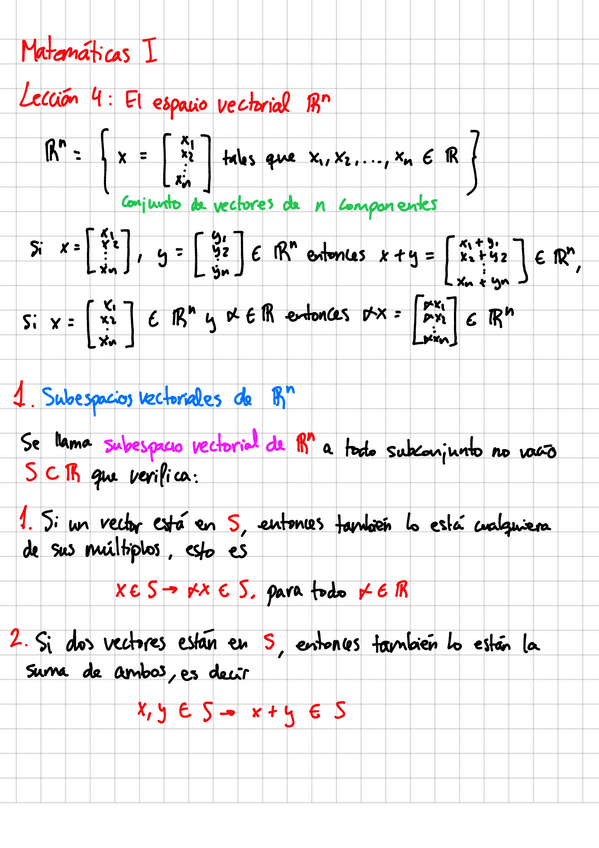 Matemáticas I
Lección 4: El espacio vectorial ℝⁿ
ℝⁿ = { x = [x₁ x₂ ⋮ xₙ] tales que x₁, x₂, ..., xₙ ∈ ℝ }
Conjunto de vectores de n componentes
Si x = [x₁ x₂ ⋮ xₙ], y = [y₁ y₂ ⋮ yₙ] ∈ ℝⁿ entonces x + y = [x₁ + y₁ x₂ + y₂ ⋮ xₙ + yₙ] ∈ ℝⁿ,
Si x = [x₁ x₂ ⋮ xₙ] ∈ ℝⁿ y α ∈ ℝ entonces αx = [αx₁ αx₂ ⋮ αxₙ] ∈ ℝⁿ
1. Subespacios vectoriales de ℝⁿ
Se llama subespacio vectorial de ℝⁿ a todo subconjunto no vacío
S ⊂ ℝ que verifica:
1. Si un vector está en S, entonces también lo está cualquiera
de sus múltiplos, esto es
x ∈ S → αx ∈ S, para todo α ∈ ℝ
2. Si dos vectores están en S, entonces también lo están la
suma de ambos, es decir
x, y ∈ S → x + y ∈ S